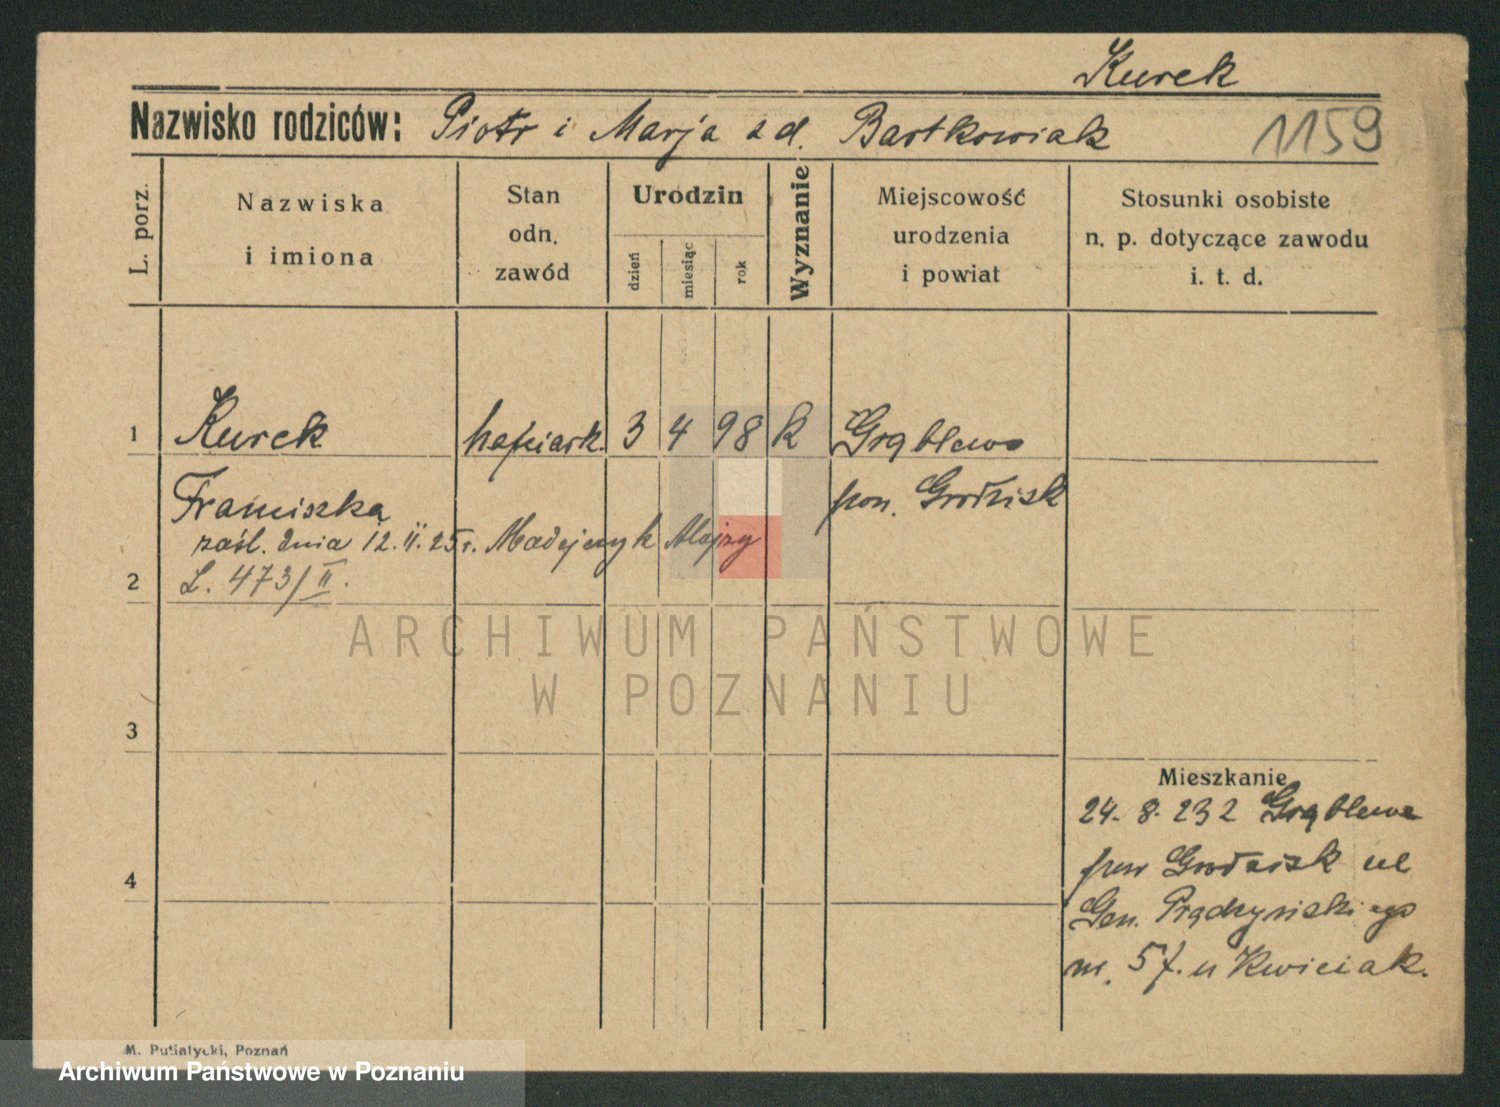 Kurek
Nazwisko rodziców: Piotr i Marja z d. Bartkowiak
1159
L. porz.
Nazwiska
i imiona
Stan
odn.
zawód
Urodzin
dzień
miesiąc
rok
Wyznanie
Miejscowość
urodzenia
i powiat
Stosunki osobiste
n. p. dotyczące zawodu
i. t. d.
1 Kurek hafciark. 3 4 98 k Grąblewo
Franciszka pow. Grodzisk
zaśl. dnia 12. II. 25 r. Madejczyk Alojzy
2 L. 473/II.
ARCHIWUM PAŃSTWOWE
W POZNANIU
3
Mieszkanie
24. 8. 232 Grąblewo
4 pow Grodzisk ul
Gen. Prądzyńskiego
m. 5 u Kwieciak.
M. Putiatycki, Poznań
Archiwum Państwowe w Poznaniu